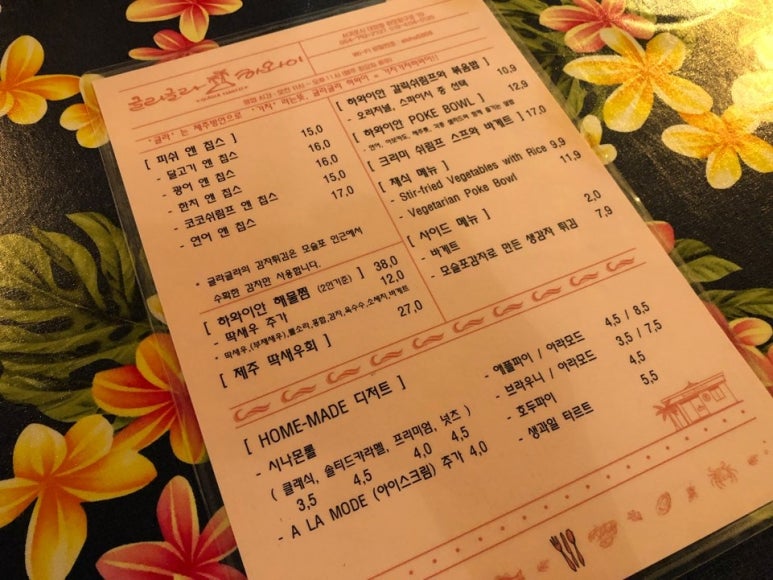 글라글라 하와이
'글라' 는 제주방언으로 '가자' 라는뜻, 글라글라 하와이 = 가자가자하와이!!
[ 피쉬 앤 칩스 ]
- 달고기 앤 칩스 15,0
- 광어 앤 칩스 16,0
- 한치 앤 칩스 16,0
- 코코쉬림프 앤 칩스 15,0
- 연어 앤 칩스 17,0
* 글라글라의 감자튀김은 모슬포 인근에서
수확한 감자만 사용합니다.
[ 하와이안 해물찜 (2인기준) ] 38,0
- 딱새우 추가 12,0
[ 제주 딱새우회 ] 27,0
[ 하와이안 갈릭쉬림프와 볶음밥 ] 10,9
- 오리지널, 스파이시 중 선택
[ 하와이안 POKE BOWL ] 12,9
[ 크리미 쉬림프 스프와 바게트 ] 17,0
[ 채식 메뉴 ]
- Stir-fried Vegetables with Rice 9,9
- Vegetarian Poke Bowl 11,9
[ 사이드 메뉴 ]
- 바게트 2,0
- 모슬포감자로 만든 생감자 튀김 7,9
[ HOME-MADE 디저트 ]
- 시나몬롤
( 클래식, 솔티드카라멜, 프리미엄, 넛츠 )
3,5 4,5 4,0 4,5
- A LA MODE (아이스크림) 추가 4,0
- 애플파이 / 아라모드 4,5 / 8,5
- 브라우니 / 아라모드 3,5 / 7,5
- 호두파이 4,5
- 생과일 타르트 5,5